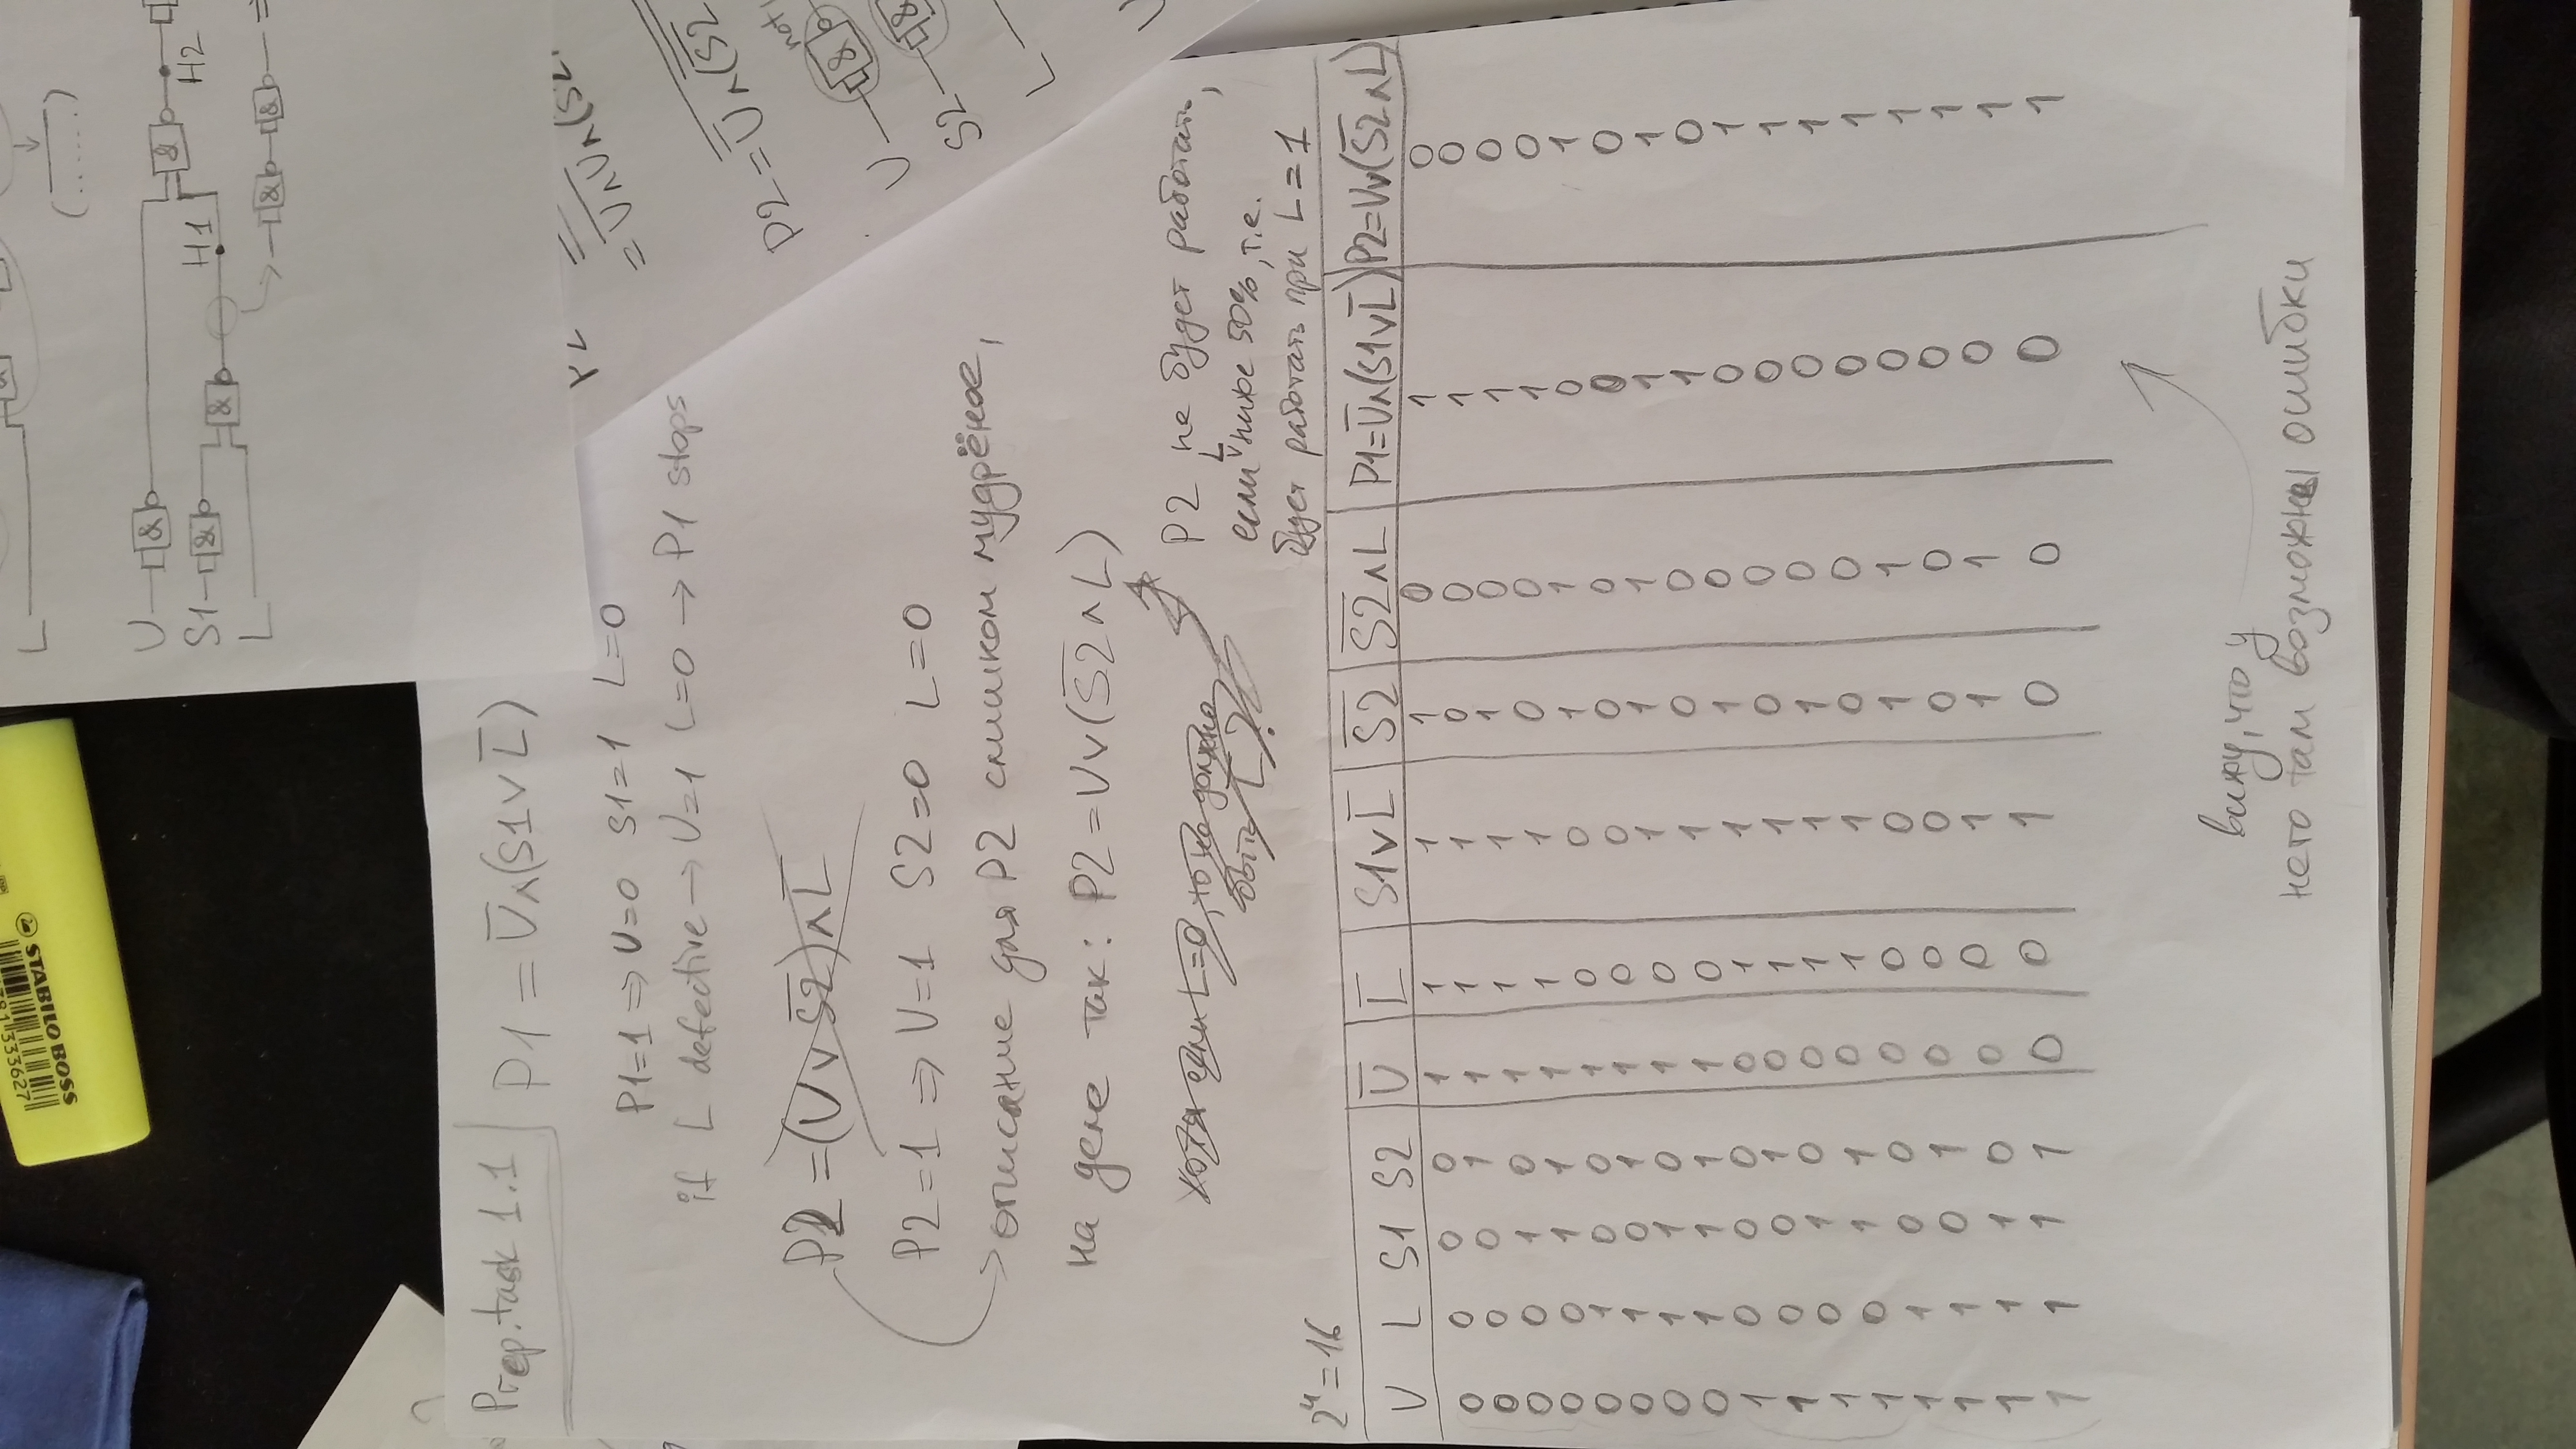 333627
STABILO BOSS
L
(......)
U & & H2
S1 & & H1
L
& & =
Prep. task 1.1
P1 = U̅∧(S1∨L̅)
P1=1 ⇒ U=0 S1=1 L=0
if L defective → U=1 L=0 → P1 stops
P2 = (U∨S̅2̅)∧L̅
P2=1 ⇒ U=1 S2=0 L=0
описание для P2 слишком мудрёное,
на деле так: P2=U∨(S̅2̅∧L)
хотя если L=0, то не должно
быть L̅?
P2 не будет работать,
если L ниже 50%, т.е.
будет работать при L=1
2⁴=16
U L S1 S2 U̅ L̅ S1∨L̅ S̅2̅ S̅2̅∧L P1=U̅∧(S1∨L̅) P2=U∨(S̅2̅∧L)
0 0 0 0 1 1 1 1 0 1 0
0 0 0 1 1 1 1 0 0 1 0
0 0 1 0 1 1 1 1 0 1 0
0 0 1 1 1 1 1 0 0 1 0
0 1 0 0 1 0 0 1 1 0 1
0 1 0 1 1 0 0 0 0 0 0
0 1 1 0 1 0 1 1 1 1 1
0 1 1 1 1 0 1 0 0 1 0
1 0 0 0 0 1 1 1 0 0 1
1 0 0 1 0 1 1 0 0 0 1
1 0 1 0 0 1 1 1 0 0 1
1 0 1 1 0 1 1 0 0 0 1
1 1 0 0 0 0 0 1 1 0 1
1 1 0 1 0 0 0 0 0 0 1
1 1 1 0 0 0 1 1 1 0 1
1 1 1 1 0 0 1 0 0 0 1
вижу, что у
него там возможны ошибки
P2 =
= U∧U∧(S2
P2 = U̅∧(S̅2̅
not
U &
S2 &
L